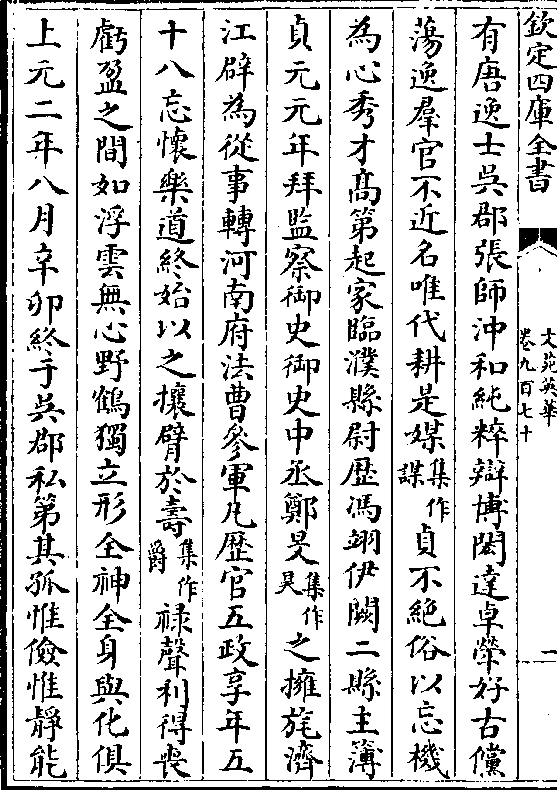 欽定四庫全書
文苑英華
卷九百七十
一
有唐逸士吳郡張師沖和純粹辯博閎達卓犖好古儻
蕩逸羣官不近名唯代耕是媒集作謀貞不絶俗以忘機
為心秀才髙第起家臨濮縣尉歴馮翊伊闕二縣主簿
貞元元年拜監察御史御史中丞鄭旻集作炅之擁旄濟
江辟為從事轉河南府法曹參軍凡歴官五政享年五
十八忘懷樂道終始以之攘臂於壽集作爵祿聲利得喪
虧盈之間如浮雲無心野鶴獨立形全神全身與化俱
上元二年八月辛卯終于吳郡私第其孤惟儉惟靜能